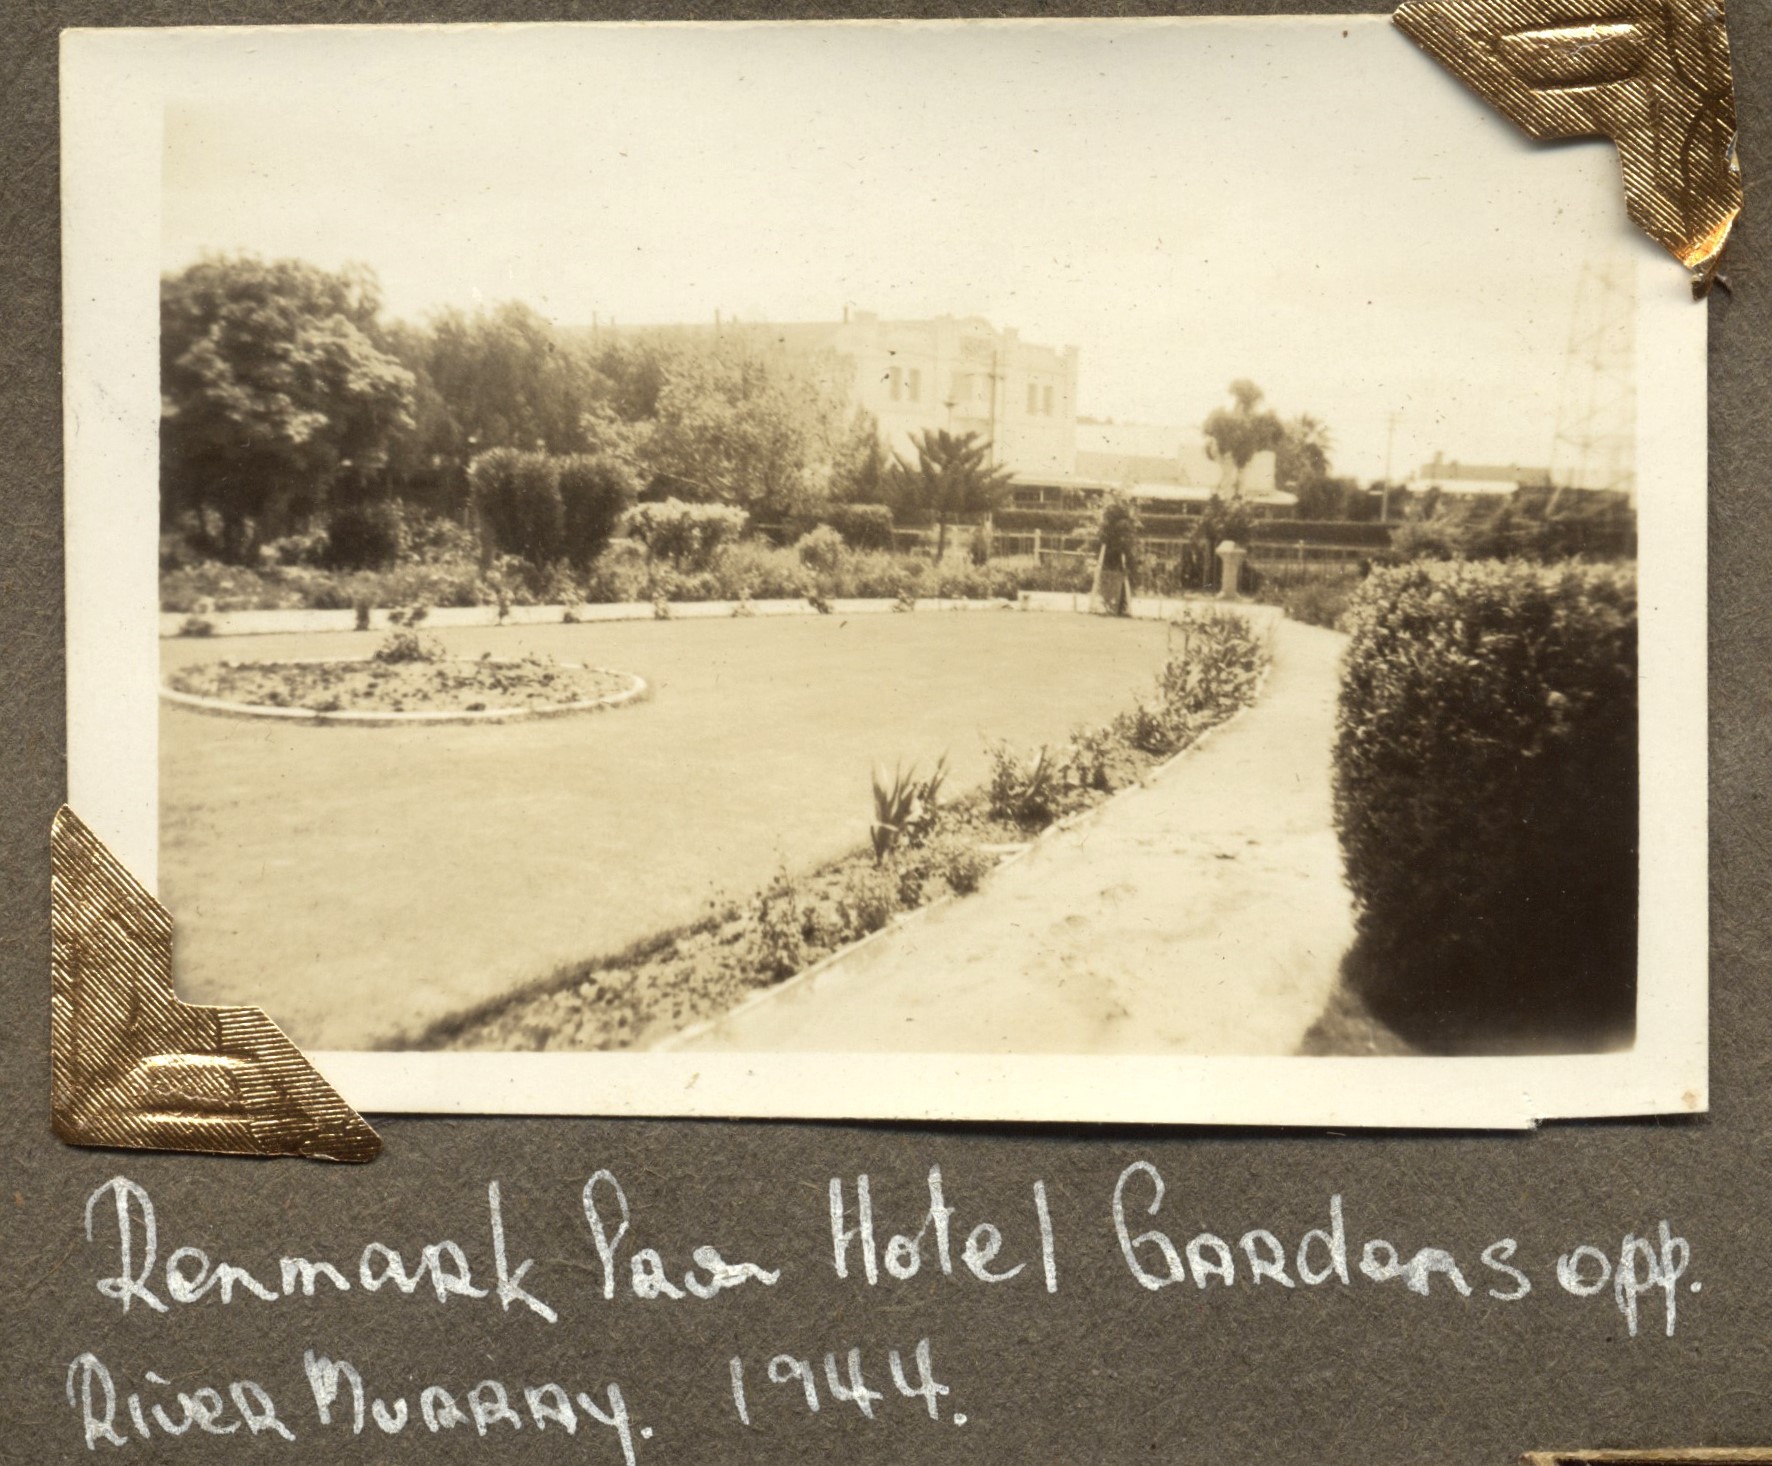 Renmark Hotel Gardens opp.
River Murray. 1944.